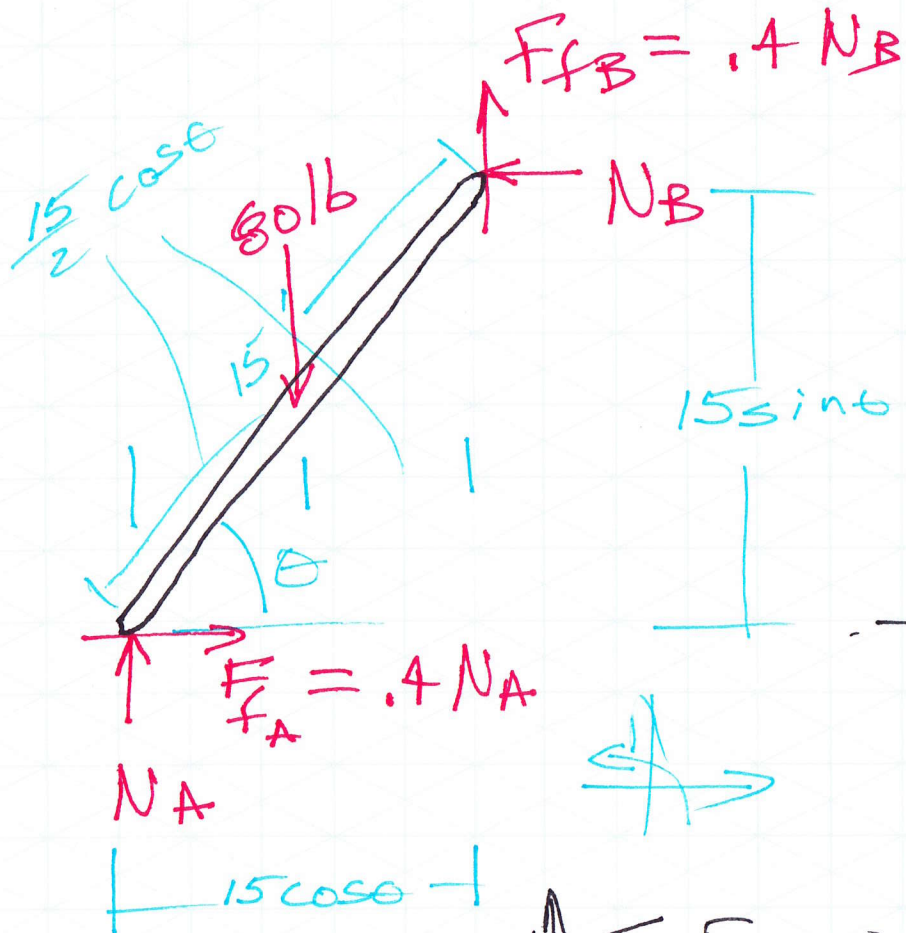 FfB = .4 NB
15/2 cosθ
80lb
NB
15
15sinθ
θ
FfA = .4 NA
NA
15cosθ